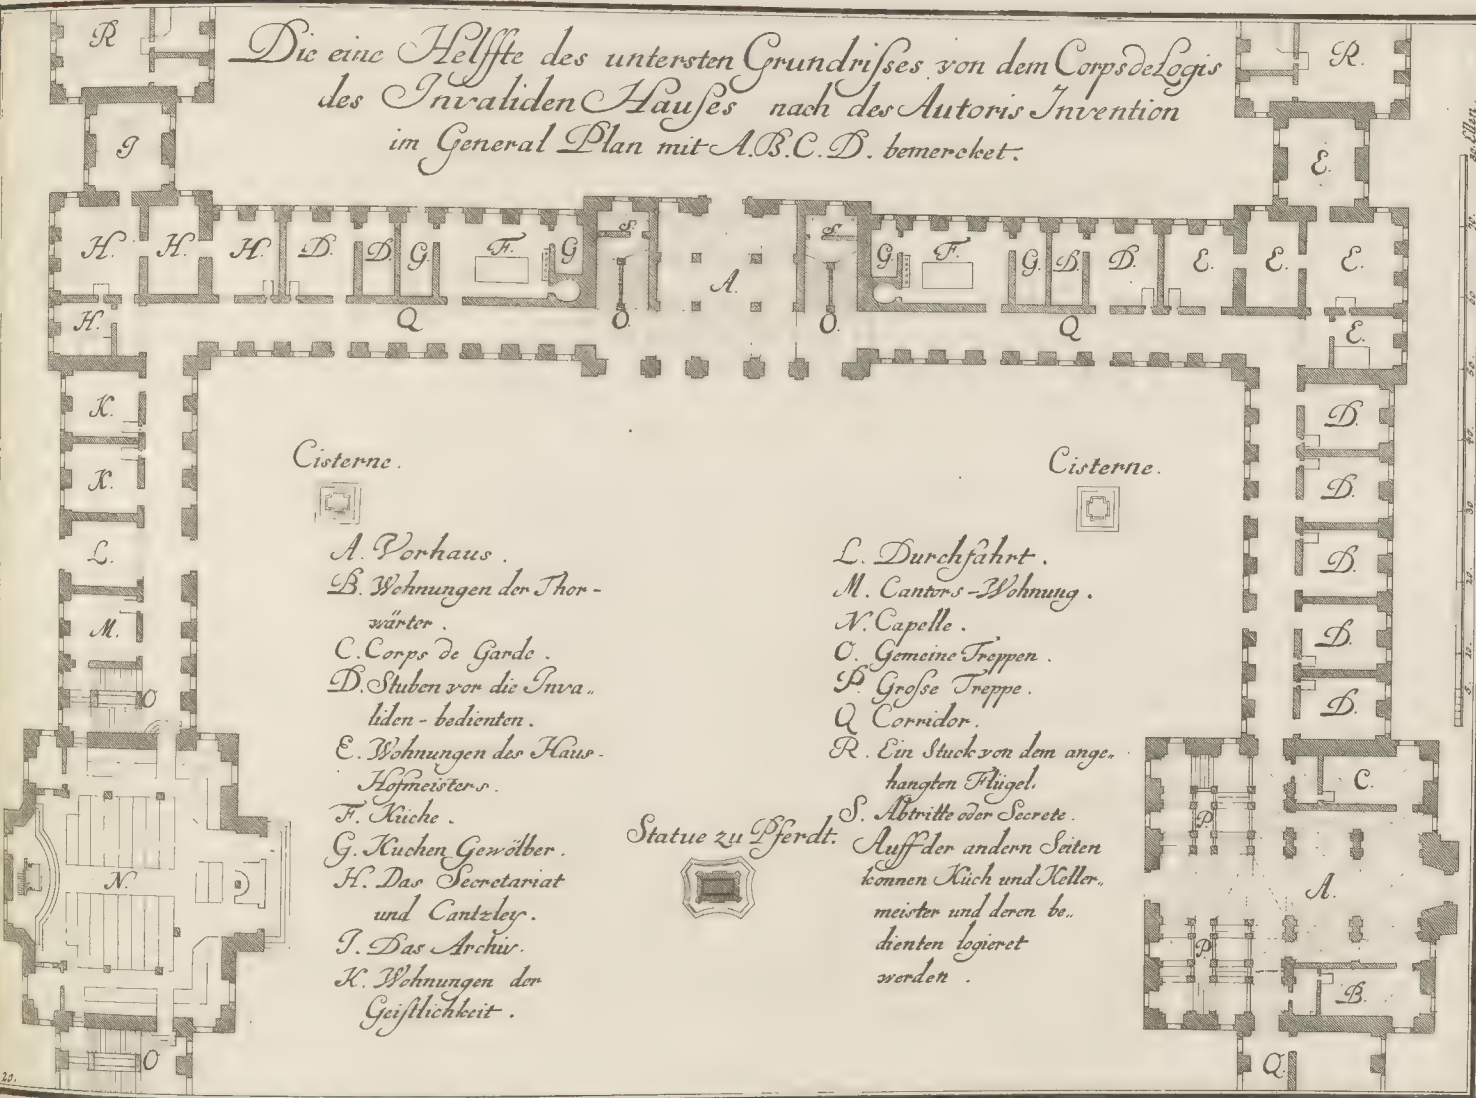 Die eine Helffte des untersten Grundrisses von dem Corps de Logis
des Invaliden Hauses nach des Autoris Invention
im General Plan mit A.B.C.D. bemercket.
R
R.
J
E.
H.
H.
H.
D.
D.
G.
F.
G
S.
A.
S.
G.
F.
G.
B.
D.
E.
E.
E.
H.
Q
O.
O.
Q
E.
K.
D.
K.
D.
L.
D.
M.
D.
O
D.
Cisterne.
Cisterne.
A. Vorhaus.
B. Wohnungen der Thor-
wärter.
C. Corps de Garde.
D. Stuben vor die Inva„
liden-bedienten.
E. Wohnungen des Haus-
Hofmeisters.
F. Küche.
G. Kuchen Gewölber.
H. Das Secretariat
und Cantzley.
J. Das Archiv.
K. Wohnungen der
Geistlichkeit.
L. Durchfahrt.
M. Cantors-Wohnung.
N. Capelle.
O. Gemeine Treppen.
P. Grosse Treppe.
Q Corridor.
R. Ein Stuck von dem ange„
hangten Flügel.
S. Abtritte oder Secrete.
Auff der andern Seiten
konnen Küch und Keller„
meister und deren be„
dienten logieret
werden.
Statue zu Pferdt.
N.
C.
P.
A.
P.
B.
O
Q.
20.
5.
10.
20.
30.
40.
50.
60.
70.
80. Ellen